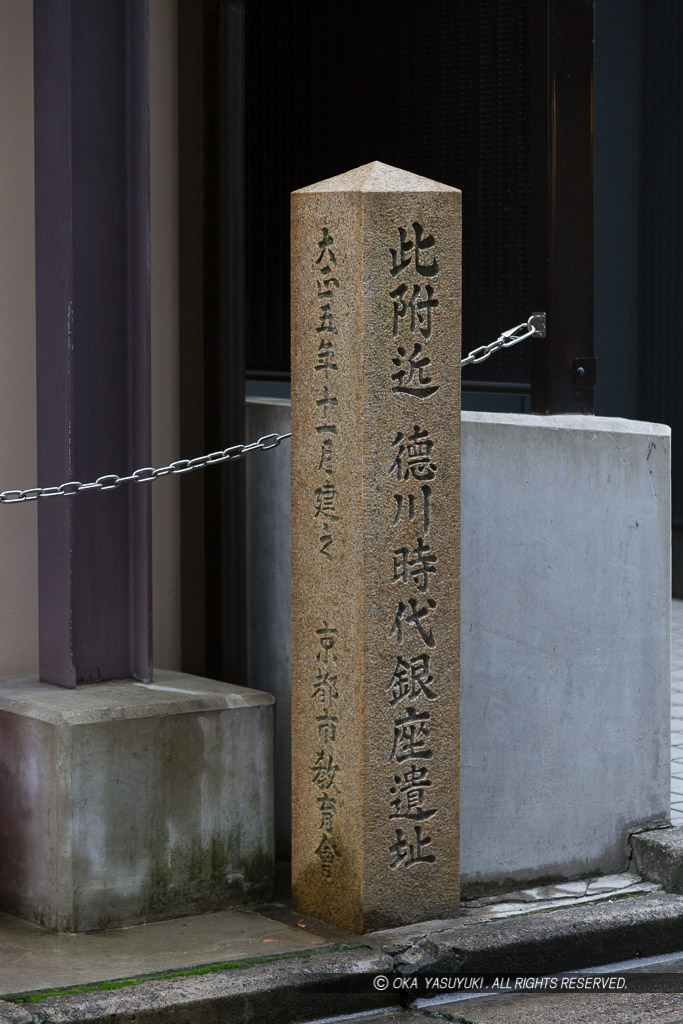 此附近 德川時代銀座遺址
大正五年十一月建之 京都市教育會
© OKA YASUYUKI. ALL RIGHTS RESERVED.